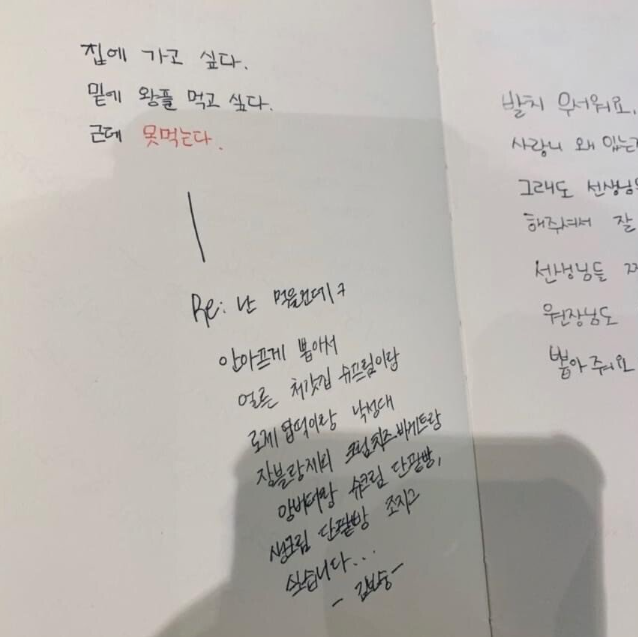 집에 가고 싶다.
밑에 왕플 먹고 싶다.
근데 못먹는다.
Re: 난 먹을건데 ㅋ
안아프게 뽑아서
얼른 처갓집 슈프림이랑
로제 떡이랑 낙성대
장블랑제리 크림치즈바게트랑
앙버터랑 슈크림 단팥빵,
생크림 단팥빵 조지고
싶습니다...
발치 무서워요.
사랑니 왜 있는
그래도 선생님
해주셔서 잘
선생님들
원장님도
뽑아 줘요